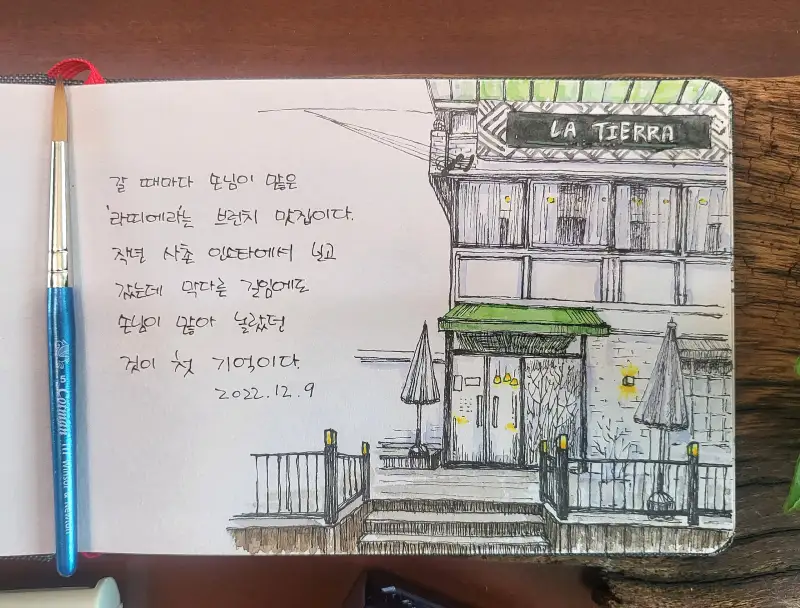 LA TIERRA
갈 때마다 손님이 많은
'라띠에라'는 브런치 맛집이다.
작년 사촌 인스타에서 보고
갔는데 막다른 길임에도
손님이 많아 놀랐던
것이 첫 기억이다.
2022.12.9
5 Cotman 111 Winsor & Newton